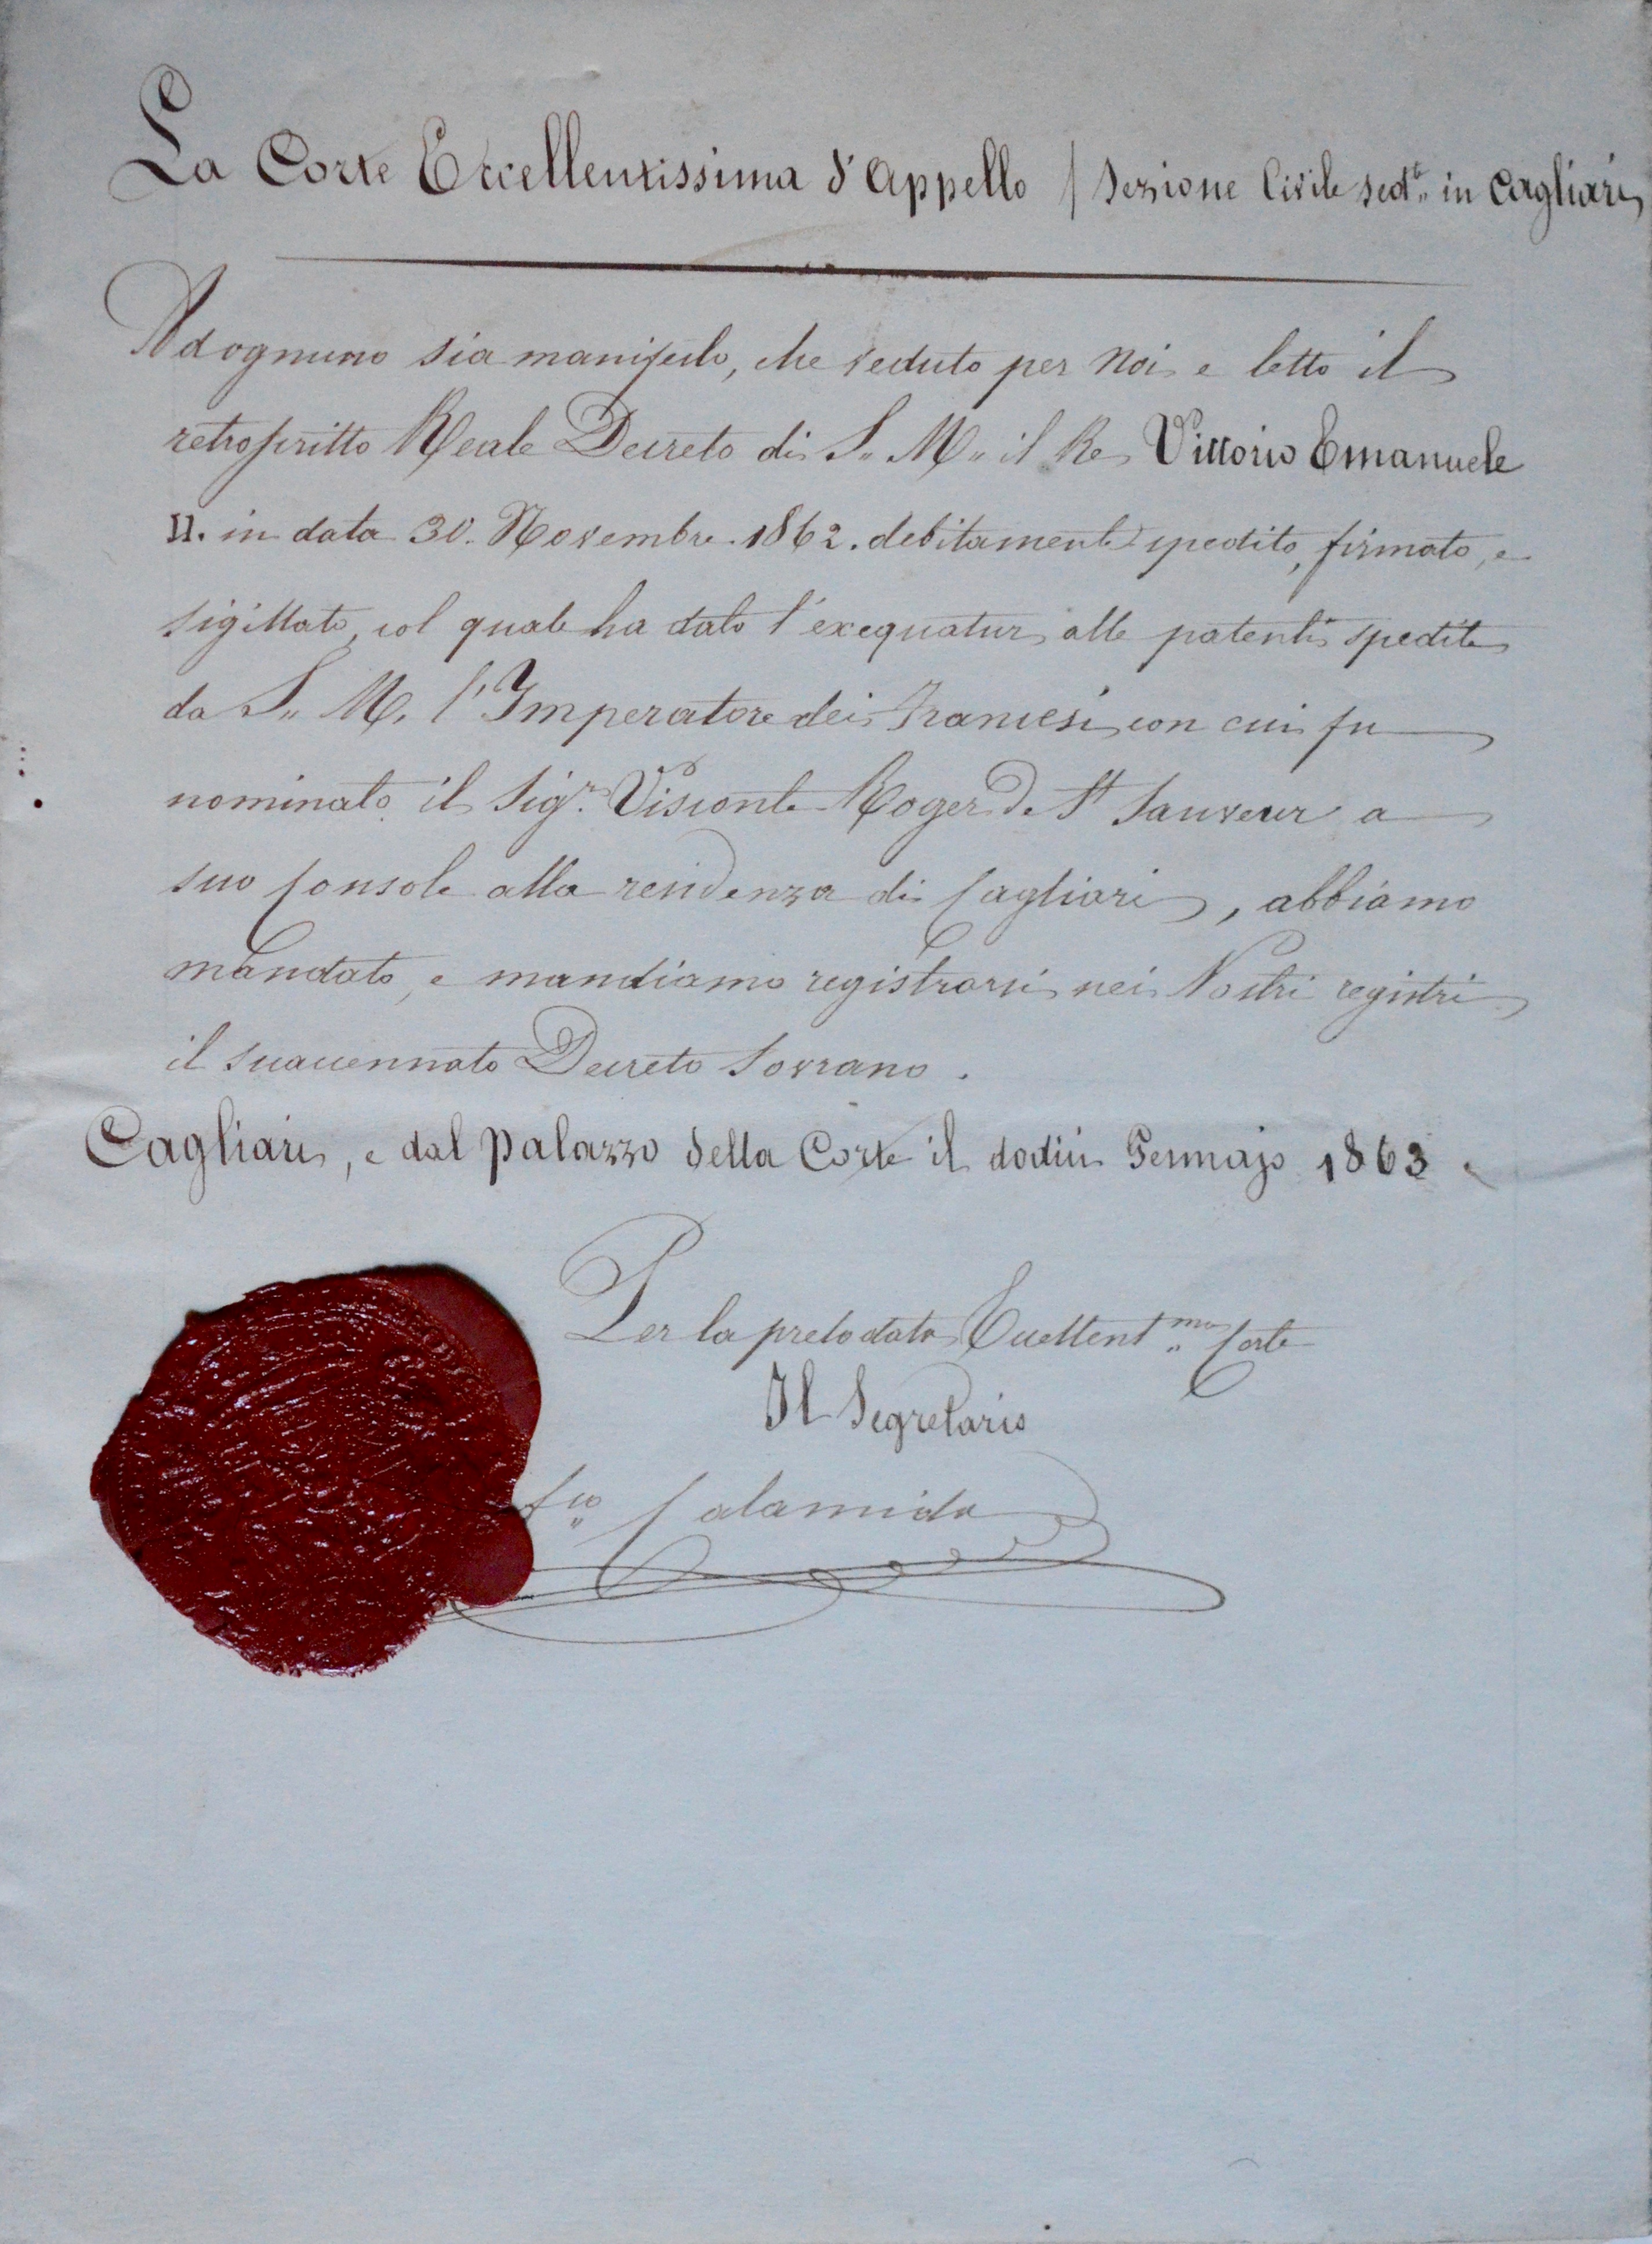 La Corte Eccellentissima d'Appello / Sezione Civile sed.te in Cagliari
Ad ognuno sia manifesto, che veduto per Noi e letto il
retroscritto Reale Decreto di S. M. il Re Vittorio Emanuele
II. in data 30. Novembre 1862. debitamente spedito, firmato, e
sigillato, col quale ha dato l'exequatur alle patenti spedite
da S. M. l'Imperatore dei Francesi con cui fu
nominato il Sig.r Visconte Roger De St Sauveur a
suo Console alla residenza di Cagliari, abbiamo
mandato, e mandiamo registrarsi nei Nostri registri
il suaccennato Decreto Sovrano.
Cagliari, e dal Palazzo della Corte il dodici Gennajo 1863
Per la prelodata Eccellent.ma Corte
Il Segretario
Calamida